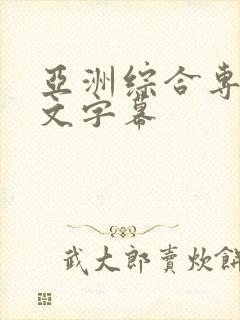 亞洲綜合專
文字幕
武大郎賣炊餅